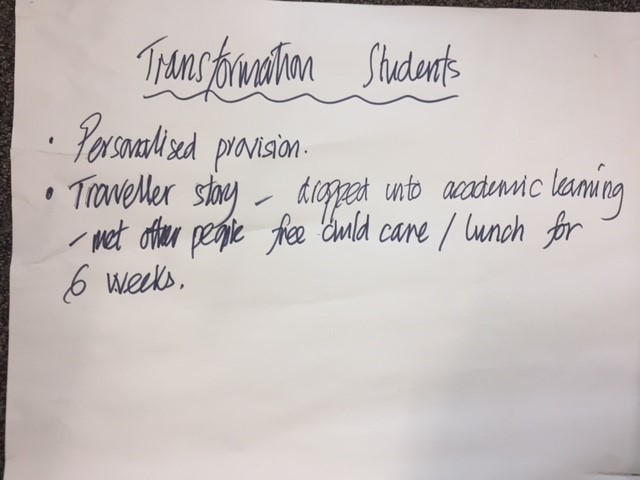 Transformation Students
• Personalised provision.
• Traveller story – dropped into academic learning
– met other people free child care / lunch for
6 weeks.